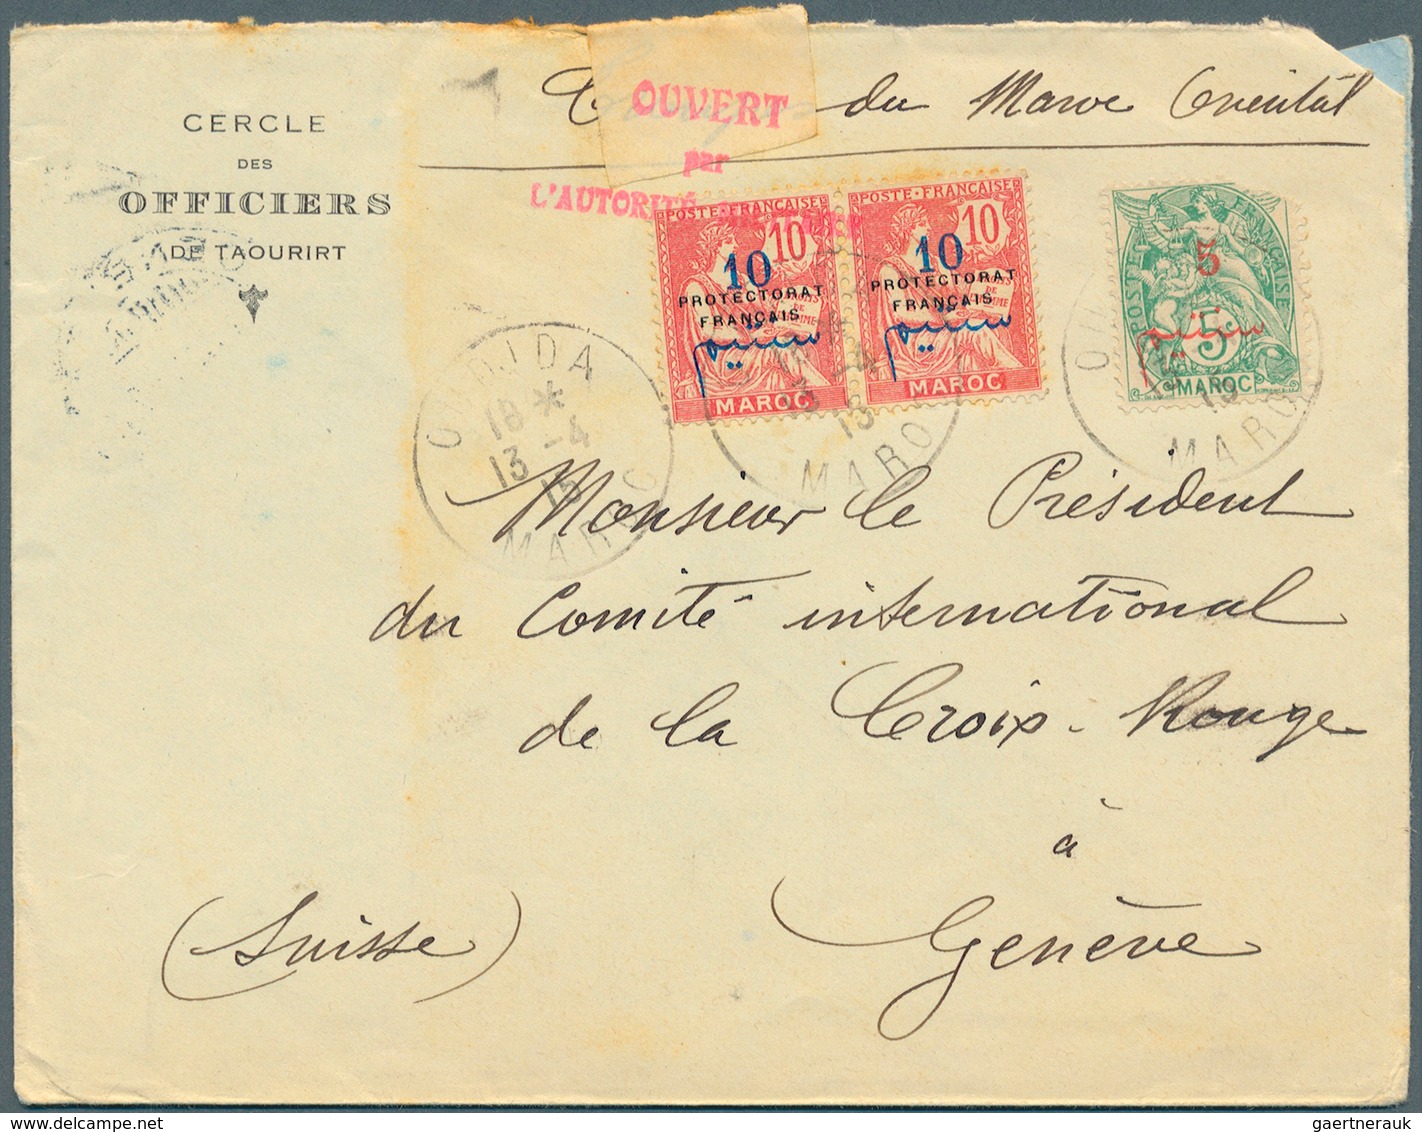 CERCLE
DES
OFFICIERS
DE TAOURIRT
du Maroc Oriental
OUVERT
par
L'AUTORITÉ
POSTE FRANÇAISE
10
10
PROTECTORAT
FRANÇAIS
سنتيم
MAROC
POSTE FRANÇAISE
10
10
PROTECTORAT
FRANÇAIS
سنتيم
MAROC
POSTE FRANÇAISE
5
سنتيم
5
MAROC
OUJDA
18 *
13 -4
15
MAROC
MARO
MARO
Monsieur le Président
du Comité international
de la Croix-Rouge
à
Genève
(Suisse)
gaertnerauk / delcampe.net